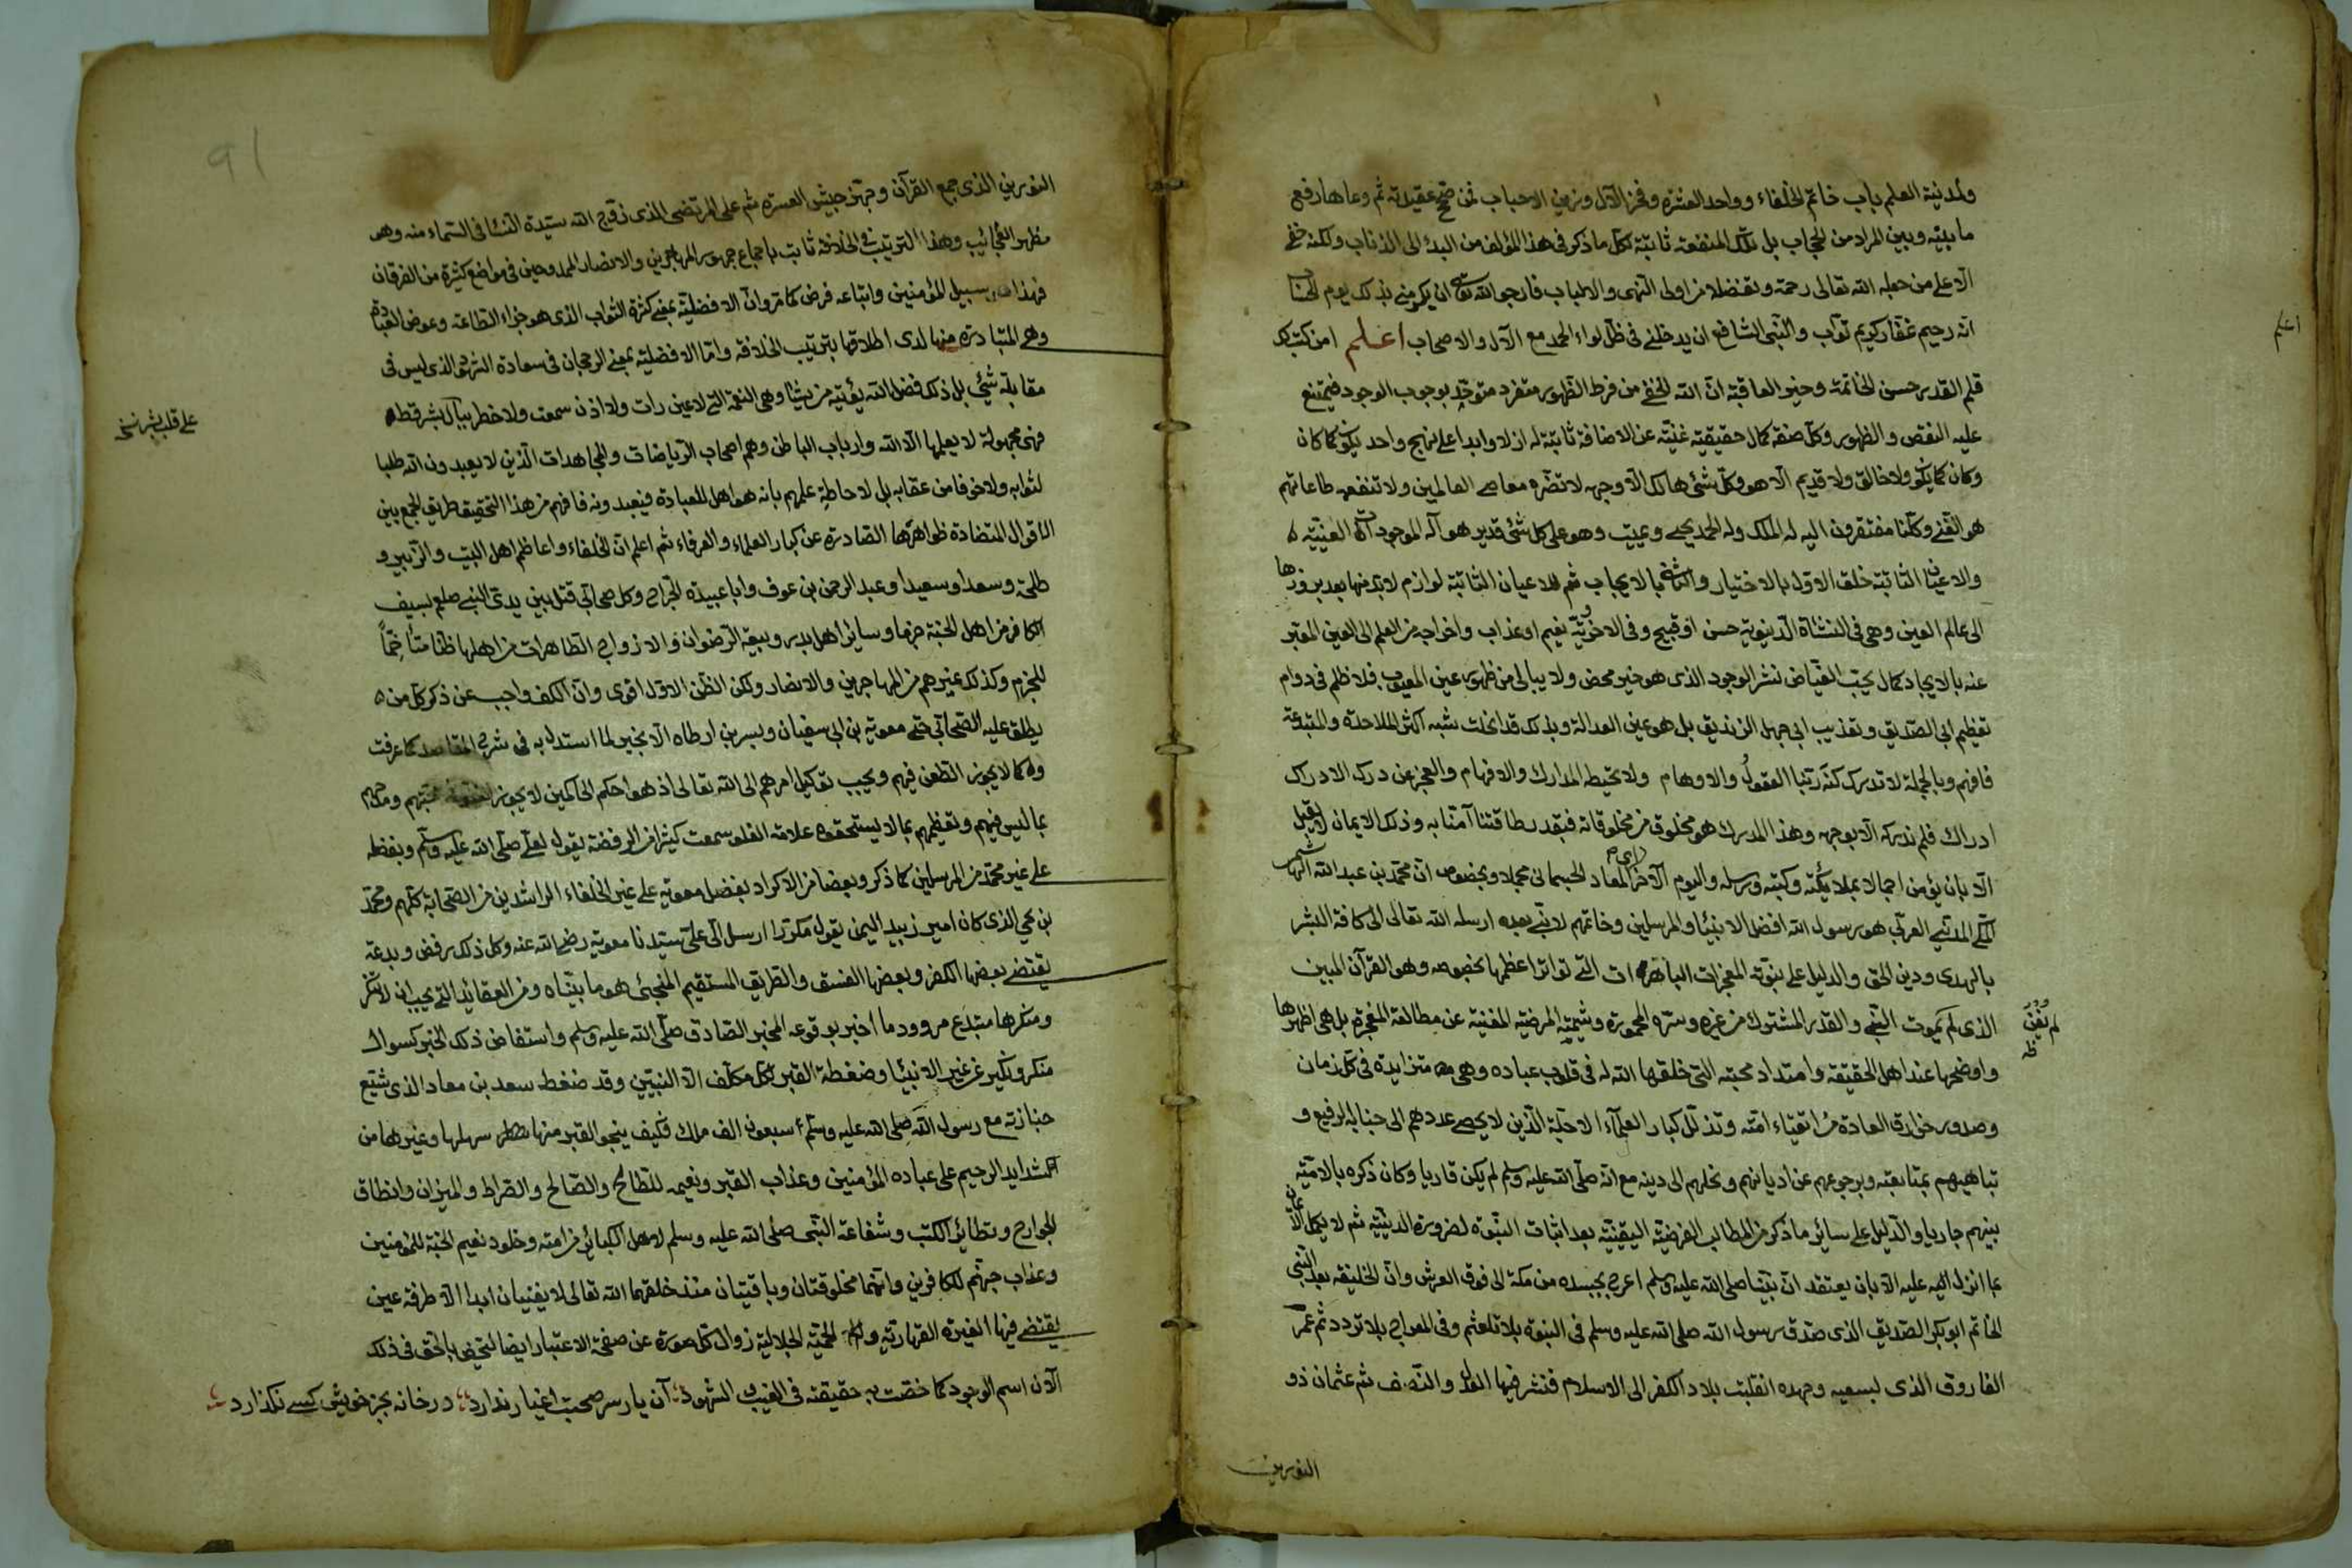 ولمدنية العلم باب خاتم الخلفاء وواحد العشرة وفخر الآل وزين الاحباب فمن صحح عقيدته ثم وعاها رفع
ما بينه وبين المراد من الحجاب بل تلك المنفعة ثابتة لكل ما ذكر في هذا المؤلف من البدء الى الذناب ولكنه خفي
الا على من جعله الله تعالى رحمة وتفضلا من اولى النهى والالباب فارجو الله تعالى ان يكرمني بذلك يوم الحساب
انه رحيم غفار كريم تواب والنبي الشافع ان يدخلني في ظل لواء الحمد مع الآل والاصحاب اعلم امن كتب لك
اعلم
قلم القدير حسن الخاتمة وخير العاقبة ان الله الخفي من فرط الظهور متفرد متوحد بوجوب الوجود فيمتنع
عليه النقص والظهور وكل صفة كمال حقيقية غنية عن الاضافة ثابتة له ازلا وابدا على نهج واحد يكون كما كان
وكان كما يكون ولا خالق ولا قديم الا هو وكل شئ هالك الا وجهه لا تضره معاصي العالمين ولا تنفعه طاعاتهم
هو الغني وكلنا مفتقرون اليه له الملك وله الحمد يحيي ويميت وهو على كل شئ قدير هو آله الموجودات العينية
والاعيان الثابتة خلق الاول بالاختيار والثاني بالايجاب ثم للاعيان الثابتة لوازم لا بد منها بعد بروزها
الى عالم العين وهي في النشاة الدنيوية حسن او قبيح وفي الاخروية نعيم او عذاب واخراجه من العلم الى العين المعبر
عنه بالايجاد كمال يحب الفياض نشر الوجود الذي هو خير محض ولا يبالي من ظهور عين المعيوب فلا ظلم في دوام
تعظيم ابي الصديق وتعذيب ابي جهل الزنديق بل هو عين العدالة وبذلك قد انحلت شبه اكثر الملاحدة والمبتدعة
فافهم وبالجملة لا تدرك كنه ربنا العقول والاوهام ولا تحيط المدارك والافهام والعجز عن درك الادراك
ادراك فلم ندركه الا بوجه وهذا المدرك هو مخلوق من مخلوقاته فبقدر طاقتنا آمنا به وذلك الايمان لا يقبل
الا بان يؤمن اجمالا بملائكته وكتبه ورسله واليوم الآخر اى المعاد الجسماني مجملا وبخصوص ان محمد بن عبد الله الهاشمى
المكي المدني العربي هو رسول الله افضل الانبياء والمرسلين وخاتمهم لا نبي بعده ارسله الله تعالى الى كافة البشر
بالهدى ودين الحق والدليل على نبوته المعجزات الباهرات التي تواتر اعظمها بخصوصه وهو القرآن المبين
الذي لم يموت النبي والقدر المشترك من غيره وسيره المحمودة وشيمته المرضية المغنية عن مطالعة المعجزة بل هي اظهرها
واوضحها عند اهل الحقيقة وامتداد محبته التي خلقها الله له في قلوب عباده وهي متزايدة في كل زمان
وصدور خوارق العادة من اتقياء امته وتذلل كبار العلماء الاجلة الذين لا يحصى عددهم الى جنابه الرفيع و
تباهيهم بمتابعته ورجوعهم عن اديانهم ونحلهم الى دينه مع انه صلى الله عليه وسلم لم يكن قاريا وكان ذكره بالامية
بينهم جاريا والدليل على سائر ما ذكر من المطالب الفرضية اليقينية بعد اثبات النبوة لضرورة الدينية ثم لا يكمل الايمان
بما انزل اليه عليه الا بان يعتقد ان نبينا صلى الله عليه وسلم اعرج بجسده من مكة الى فوق العرش وان الخليفة بعد النبي
الخاتم ابو بكر الصديق الذي صدق رسول الله صلى الله عليه وسلم في النبوة بلا تلعثم وفي المعراج بلا تردد ثم عمر
الفاروق الذي بسعيه وجهده انقلبت بلاد الكفر الى الاسلام فنشر فيها العدل والنصف ثم عثمان ذو
النورين
91
النورين الذي جمع القرآن وجهز جيش العسرة ثم علي المرتضى الذي زوج الله سيدة النساء في السماء منه وهو
مظهر العجائيب وهذا الترتيب في الخلافة ثابت باجماع جمهور المهاجرين والانصار الممدوحين في مواضع كثيرة من الفرقان
فهذا سبيل المؤمنين واتباعه فرض كما مر وان الافضلية بمعنى كثرة الثواب الذي هو جزاء الطاعة وعوض العبادة
وهي المتبادرة منها لدى اطلاقها بترتيب الخلافة واما الافضلية بمعنى الرجحان في سعادة الذي ليس في
مقابلة شئ بل ذلك فضل الله يؤتيه من يشاء وهي النعمة التي لا عين رات ولا اذن سمعت ولا خطر ببال بشر قط
على قلب بشر نسخه
فهي مجهولة لا يعلمها الا الله وارباب الباطن وهم اصحاب الرياضات والمجاهدات الذين لا يعبدون الله طلبا
لثوابه ولا خوفا من عقابه بل لاحاطة علمهم بانه هو اهل للعبادة فيعبدونه فافهم من هذا التحقيق طريق الجمع بين
الاقوال المتضادة ظواهرها الصادرة عن كبار العلماء والعرفاء ثم اعلم ان الخلفاء واعاظم اهل البيت والزبير و
طلحة وسعدا وسعيدا وعبد الرحمن بن عوف وابا عبيدة الجراح وكل صحابي قتل بين يدي النبي صلعم بسيف
الكافر من اهل الجنة جزما وسائر اهل بدر وبيعة الرضوان والازواج الطاهرات من اهلها ظنا متاخما
للجزم وكذلك غيرهم من المهاجرين والانصار ولكن الظن الاول اقوى وان الكف واجب عن ذكر كل من
يطلق عليه الصحابي حتى معوية بن ابي سفيان وبسر بن ارطاه الا بخير لما استدل به في شرح المقاصد كما عرفت
وكما لا يجوز الطعن فيهم ويجب توكيل امرهم الى الله تعالى اذ هو احكم الحاكمين لا يجوز محبتهم ومدحهم
بما ليس فيهم وتعظيمهم بما لا يستحقوه علاقة الغلو سمعت كثيرا من الرفضة يقول لعلي صلى الله عليه وسلم وبفضله
على غير محمد من المرسلين كما ذكر وبعضا من الاكراد بفضل معوية على غير الخلفاء الراشدين من الصحابة كلهم ومحمد
بن يحيى الذي كان امير زبيد اليمن يقول مكررا ارسل الى على سيدنا معوية رضي الله عنه وكل ذلك رفض وبدعة
يقتضي بعضها الكفر وبعضها الفسق والطريق المستقيم المنجي هو ما بيناه ومن العقائد التي يجب ان لا تنكر
ومنكرها مبتدع مردود ما اخبر بوقوعه المخبر الصادق صلى الله عليه وسلم واستفاض ذلك الخبر كسوال
منكر ونكير عن غير الانبياء وضغطة القبر لكل مكلف الا النبيين وقد ضغط سعد بن معاذ الذي شيع
جنازته مع رسول الله صلى الله عليه وسلم سبعون الف ملك فكيف ينجو القبر منها سهلها وغيرها من
الشدايد الرحيم على عباده المؤمنين وعذاب القبر ونعيمه للطالح والصالح والصراط والميزان وانطاق
الجوارح وتطائر الكتب وشفاعة النبي صلى الله عليه وسلم لاهل الكبائر من امته وخلود نعيم الجنة للمؤمنين
وعذاب جهنم للكافرين وانهما مخلوقتان وباقيتان منذ خلقهما الله تعالى لا يفنيان ابدا الا طرفة عين
يقتضي فيها الغيرة القهارية الجلالية زوال كل صورة عن صفحة الاعتبار ايضا ليحض الحق في ذلك
الآن اسم الوجود كما خصت به حقيقته في الغيب والشهود آن يار سر صحبت اغيار ندارد در خانه بجز خويش كسى نكذارد